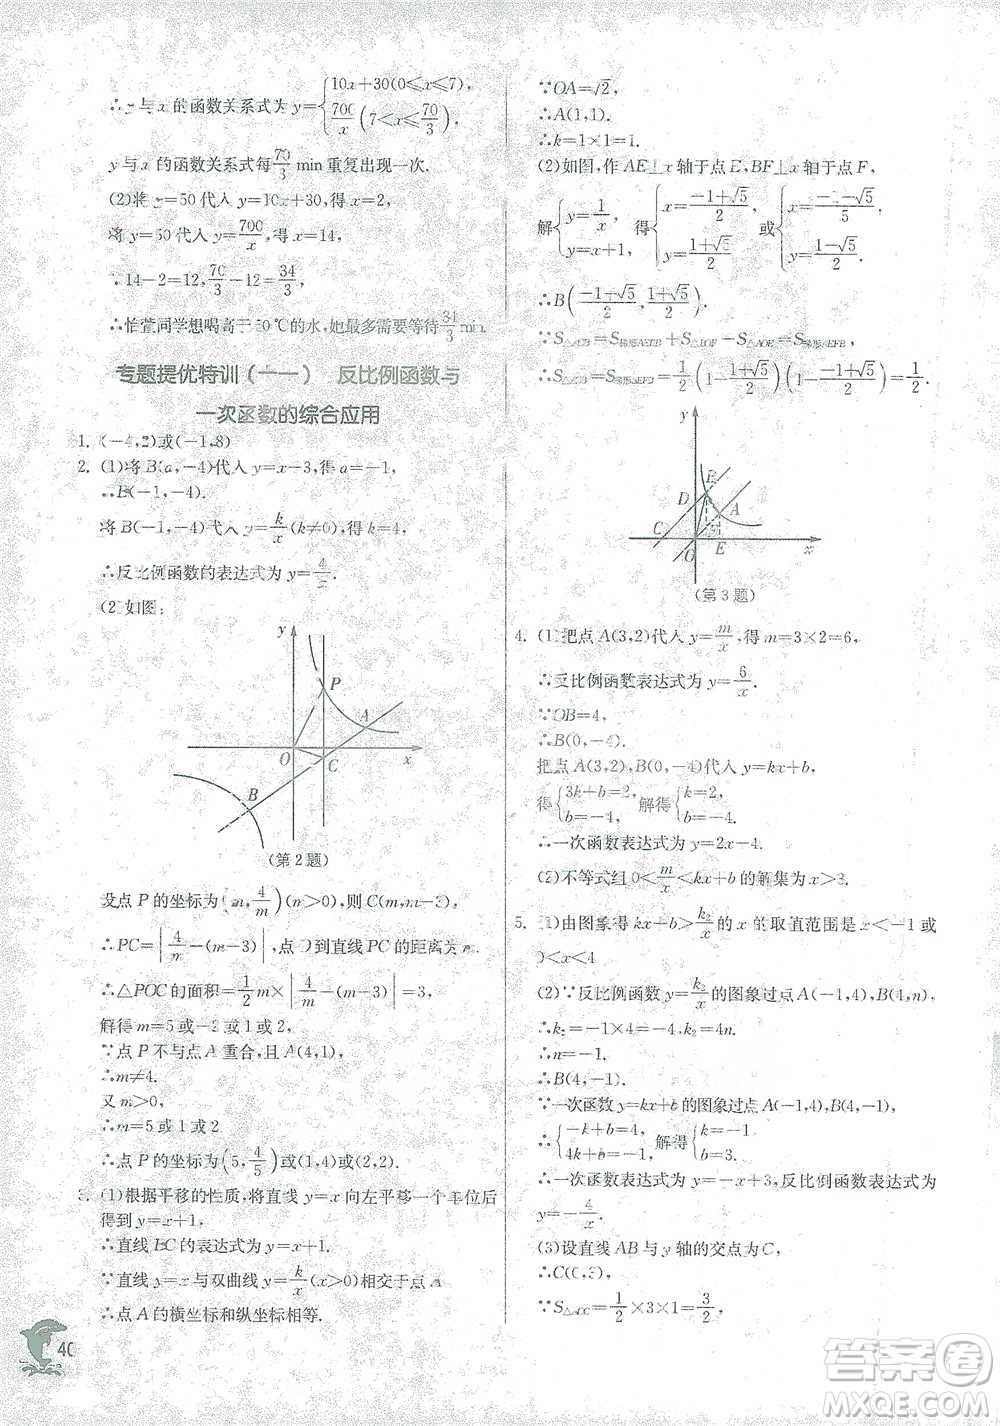 ∴y与x的函数关系式为y={10x+30(0≤x≤7), 700/x(7<x≤70/3),
y与x的函数关系式每70/3 min重复出现一次.
(2)将y=50代入y=10x+30,得x=2,
将y=50代入y=700/x,得x=14,
∵14-2=12,70/3-12=34/3
∴怡萱同学想喝高于50℃的水,她最多需要等待34/3 min.
专题提优特训(十一) 反比例函数与
一次函数的综合应用
1. (-4,2)或(-1,8)
2. (1)将B(a,-4)代入y=x-3,得a=-1,
∴B(-1,-4).
将B(-1,-4)代入y=k/x(k≠0),得k=4,
∴反比例函数的表达式为y=4/x.
(2)如图:
y
P
A
O
C
x
B
(第2题)
设点P的坐标为(m,4/m)(m>0),则C(m,m-3)
∴PC=|4/m-(m-3)|,点O到直线PC的距离为m.
∴△POC的面积=1/2 m×|4/m-(m-3)|=3,
解得m=5或-2或1或2.
∵点P不与点A重合,且A(4,1),
∴m≠4.
又m>0,
∴m=5或1或2.
∴点P的坐标为(5,4/5)或(1,4)或(2,2).
3. (1)根据平移的性质,将直线y=x向左平移一个单位后
得到y=x+1,
∴直线BC的表达式为y=x+1.
∵直线y=x与双曲线y=k/x(x>0)相交于点A,
∴点A的横坐标和纵坐标相等.
40
∵OA=√2,
∴A(1,1).
∴k=1×1=1.
(2)如图,作AE⊥x轴于点E,BF⊥x轴于点F,
解{y=1/x, y=x+1, 得{x=(-1+√5)/2, y=(1+√5)/2 或{x=(-1-√5)/2, y=(1-√5)/2.
∴B((-1+√5)/2,(1+√5)/2).
∵S△AOB=S梯形AEFB+S△BOF-S△AOE=S梯形AEFB,
∴S△AOB=S梯形AEFB=1/2(1+(1+√5)/2)(1-(-1+√5)/2)=1/2
y
B
D
A
C
O
E
x
(第3题)
4. (1)把点A(3,2)代入y=m/x,得m=3×2=6,
∴反比例函数表达式为y=6/x.
∵OB=4,
∴B(0,-4).
把点A(3,2),B(0,-4)代入y=kx+b,
得{3k+b=2, b=-4, 解得{k=2, b=-4.
∴一次函数表达式为y=2x-4.
(2)不等式组0<m/x<kx+b的解集为x>3.
5. (1)由图象得kx+b>k₂/x的x的取值范围是x<-1或
0<x<4
(2)∵反比例函数y=k₂/x的图象过点A(-1,4),B(4,n),
∴k₂=-1×4=-4,k₂=4n.
∴n=-1.
∴B(4,-1).
∵一次函数y=kx+b的图象过点A(-1,4),B(4,-1),
∴{-k+b=4, 4k+b=-1, 解得{k=-1, b=3.
∴一次函数表达式为y=-x+3,反比例函数表达式为
y=-4/x.
(3)设直线AB与y轴的交点为C,
∴C(0,3).
∵S△AOC=1/2×3×1=3/2,
答案圈
MXQE.COM